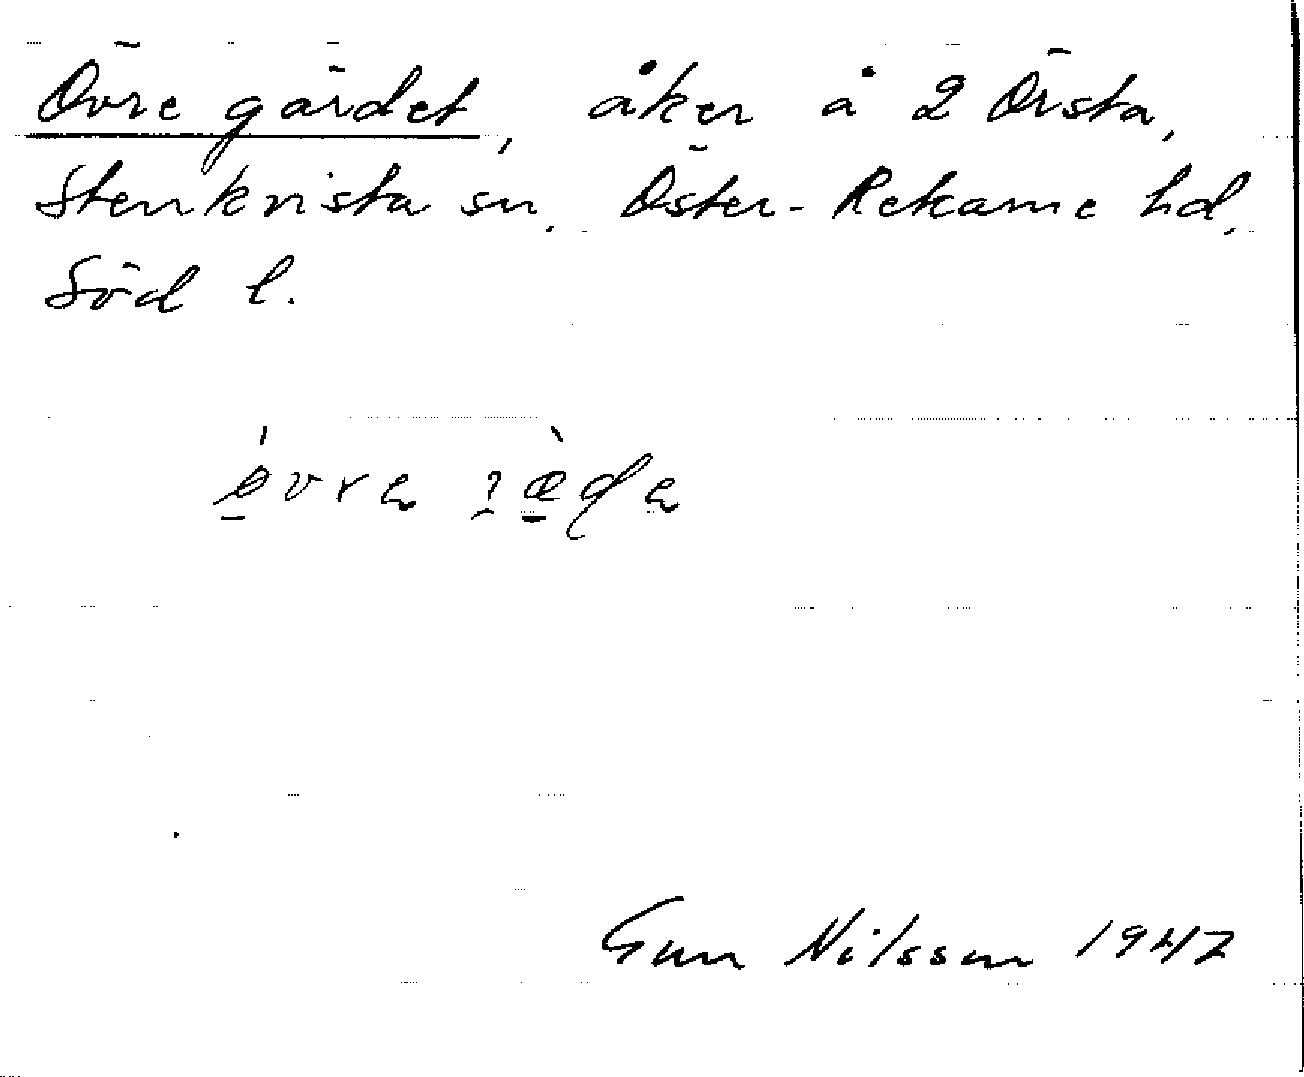 Övre gärdet, åker å 2 Örsta,
Stenkvista sn. Öster-Rekarne hd.
Söd l.
Gun Nilsson 1947